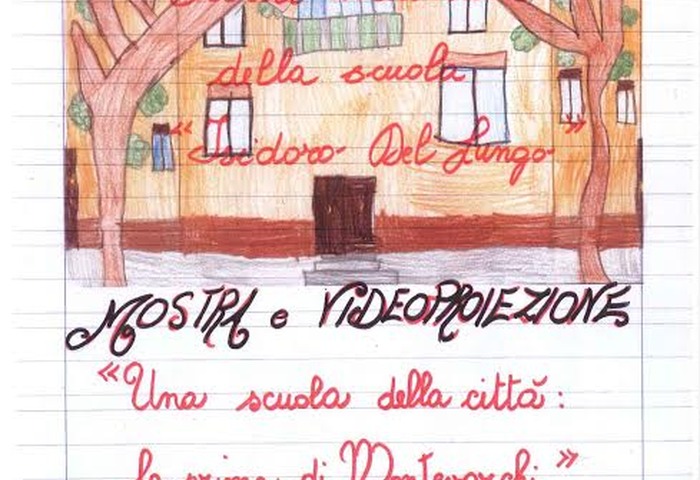 della scuola
"Isidoro Del Lungo"
MOSTRA e VIDEOPROIEZIONE
"Una scuola della città:
la prima di Montevarchi."